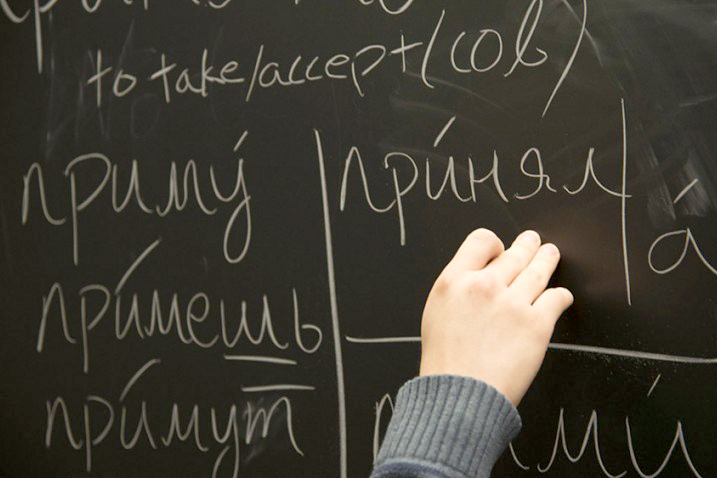 to take/accept (сов)
приму́ при́нял а́
при́мешь
при́мут